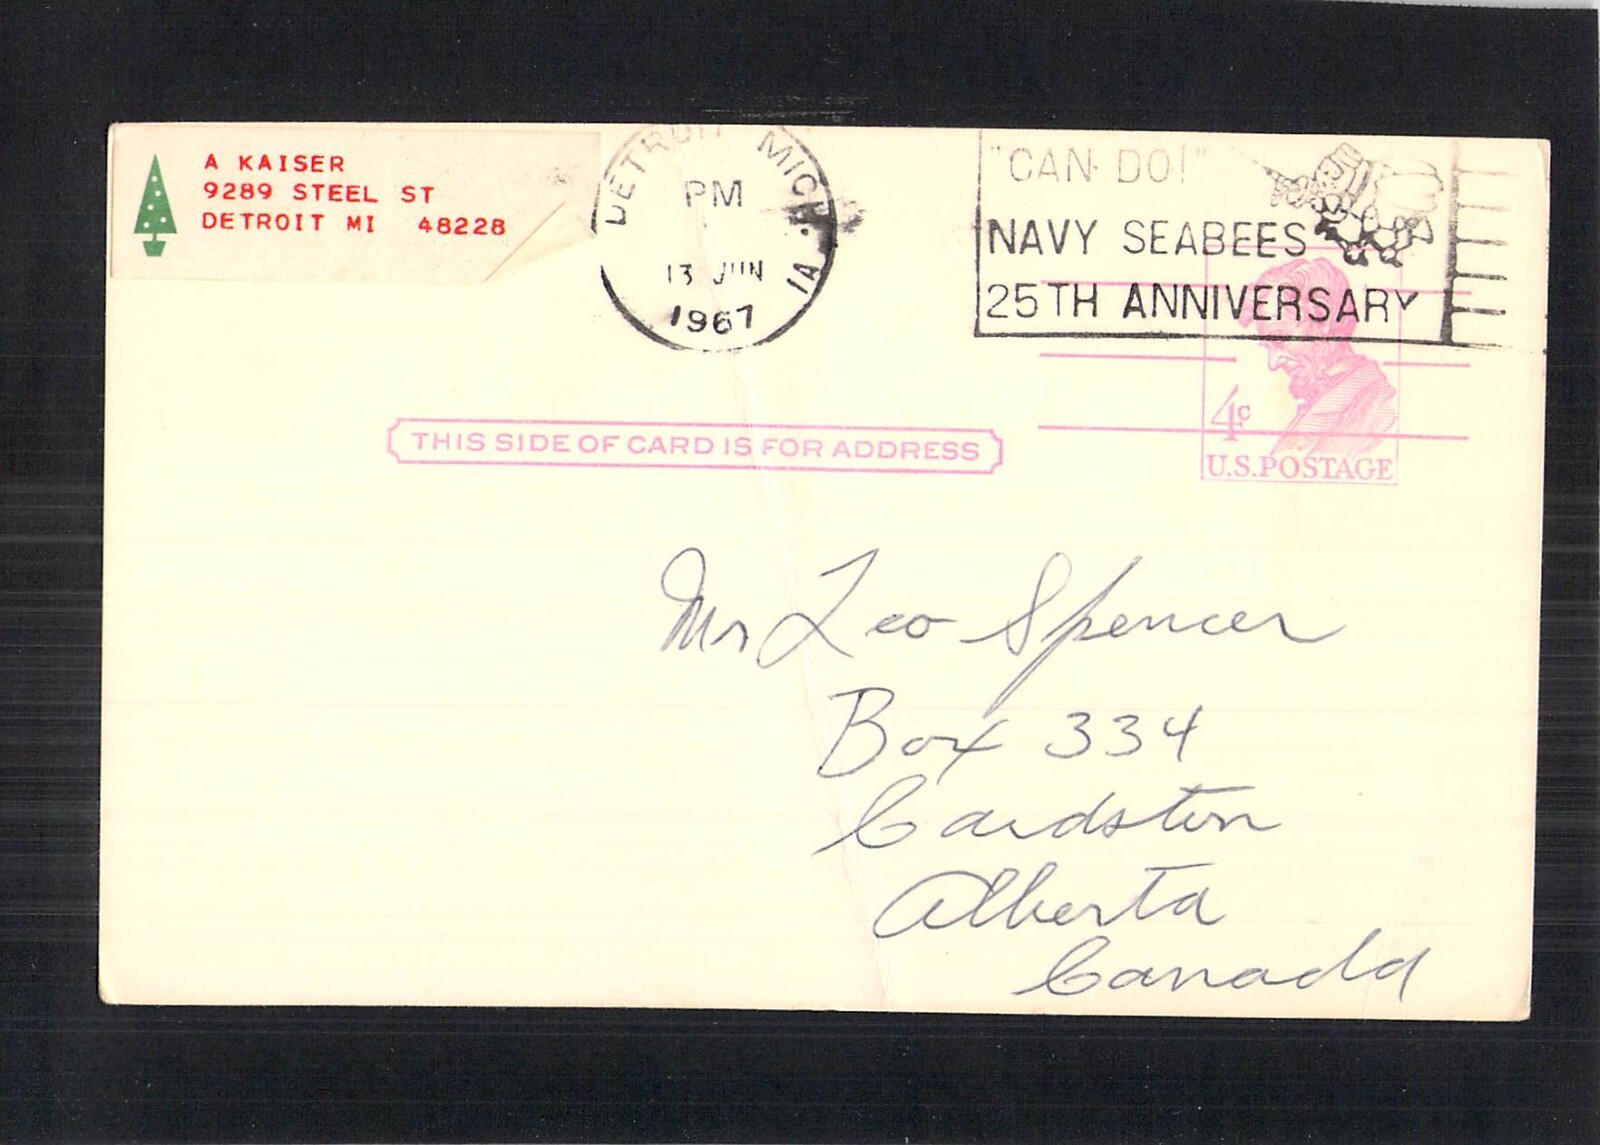 A KAISER
9289 STEEL ST
DETROIT MI 48228
DETROIT MICH
PM
13 JUN
1967
1A
"CAN DO!"
NAVY SEABEES
25TH ANNIVERSARY
4c
U.S.POSTAGE
THIS SIDE OF CARD IS FOR ADDRESS
Mr Leo Spencer
Box 334
Cardston
Alberta
Canada